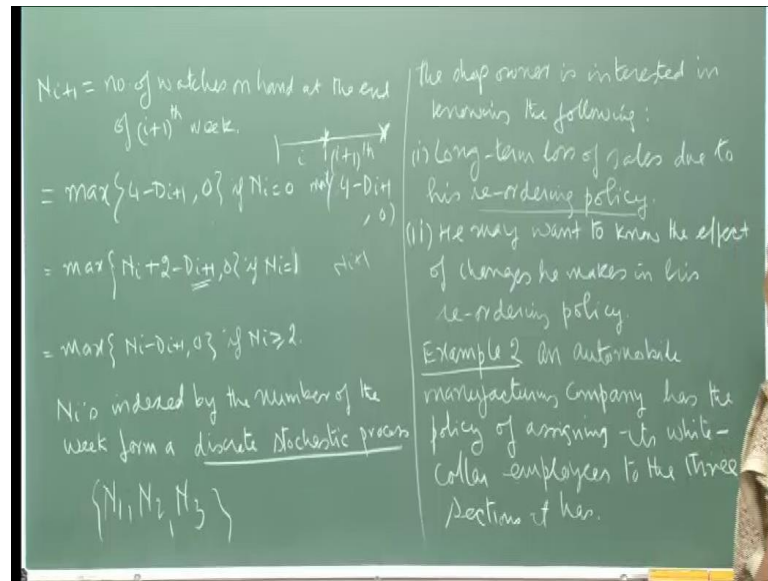 Ni+1 = no of watches on hand at the end
of (i+1)th week.
i (i+1)th
= max{4-Di+1, 0} if Ni=0 max(4-Di+1
, 0)
= max{Ni+2-Di+1, 0} if Ni=1 Ni+1
= max{Ni-Di+1, 0} if Ni≥2.
Ni's indexed by the number of the
week form a discrete stochastic process
{N1, N2, N3}
The shop owner is interested in
knowing the following:
(i) Long-term loss of sales due to
his re-ordering policy.
(ii) He may want to know the effect
of changes he makes in his
re-ordering policy.
Example 2 An automobile
manufacturing Company has the
policy of assigning its white-
collar employees to the three
sections it has.